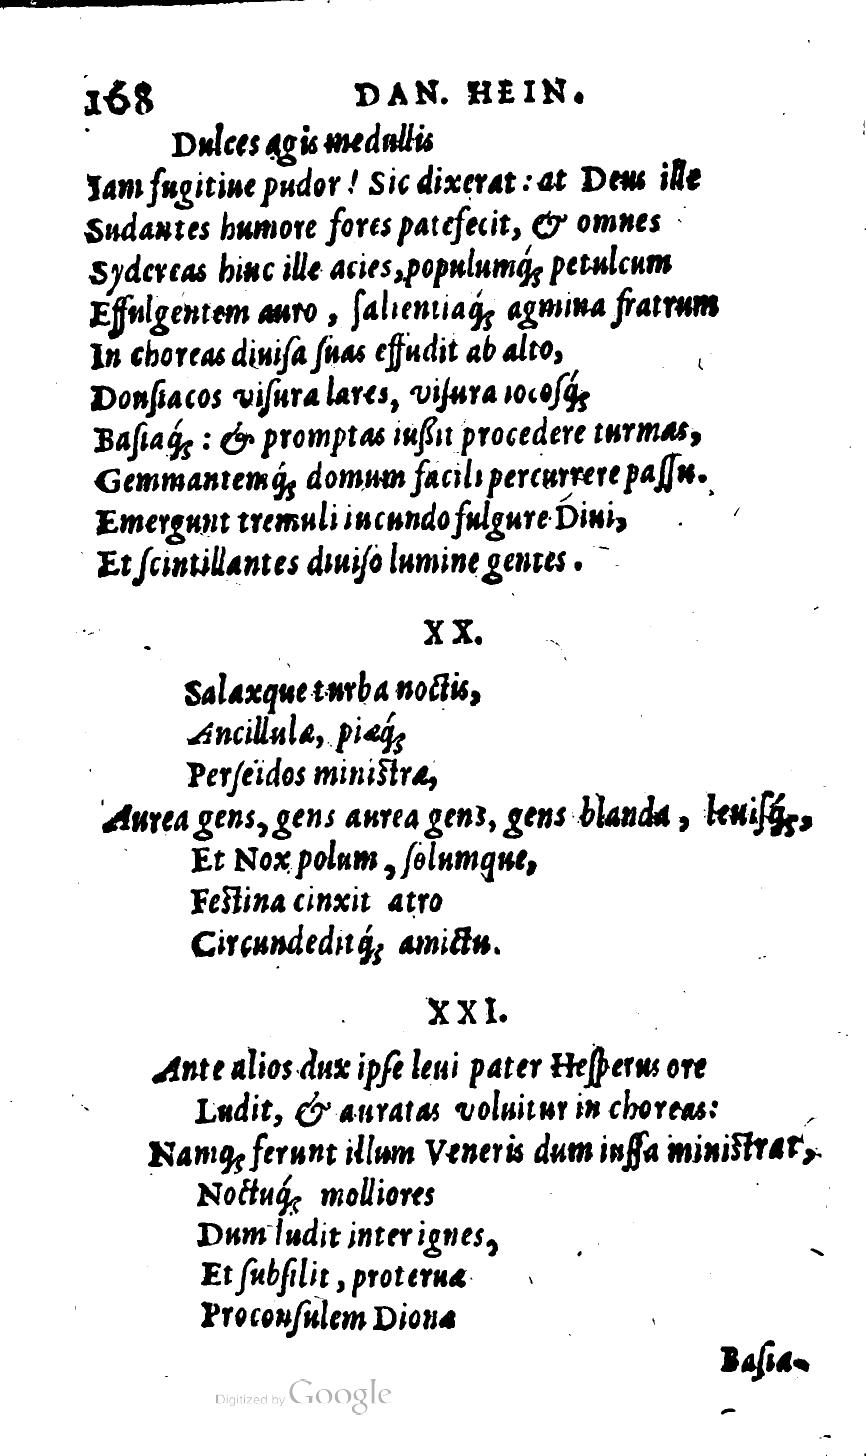 168 DAN. HEIN.
Dulces agis medullis
Iam fugitiue pudor! Sic dixerat: at Deus ille
Sudantes humore fores patefecit, & omnes
Sydereas hinc ille acies, populumq́; petulcum
Effulgentem auro, ſalientiaq́; agmina fratrum
In choreas diuiſa ſuas effudit ab alto,
Donſiacos viſura lares, viſura iocoſq́;
Baſiaq́;: & promptas iußit procedere turmas,
Gemmantemq́; domum facili percurrere paſſu.
Emergunt tremuli iucundo fulgure Diui,
Et ſcintillantes diuiſo lumine gentes.
XX.
Salaxque turba noctis,
Ancillulæ, piæq́;
Perſeidos miniſtræ,
Aurea gens, gens aurea gens, gens blanda, leuiſq́;,
Et Nox polum, ſolumque,
Feſtina cinxit atro
Circundeditq́; amictu.
XXI.
Ante alios dux ipſe leui pater Heſperus ore
Ludit, & auratas voluitur in choreas:
Namq; ferunt illum Veneris dum iuſſa miniſtrat,
Noctuq́; molliores
Dum ludit inter ignes,
Et ſubſilit, proteruæ
Proconſulem Dionæ
Baſia-
Digitized by Google